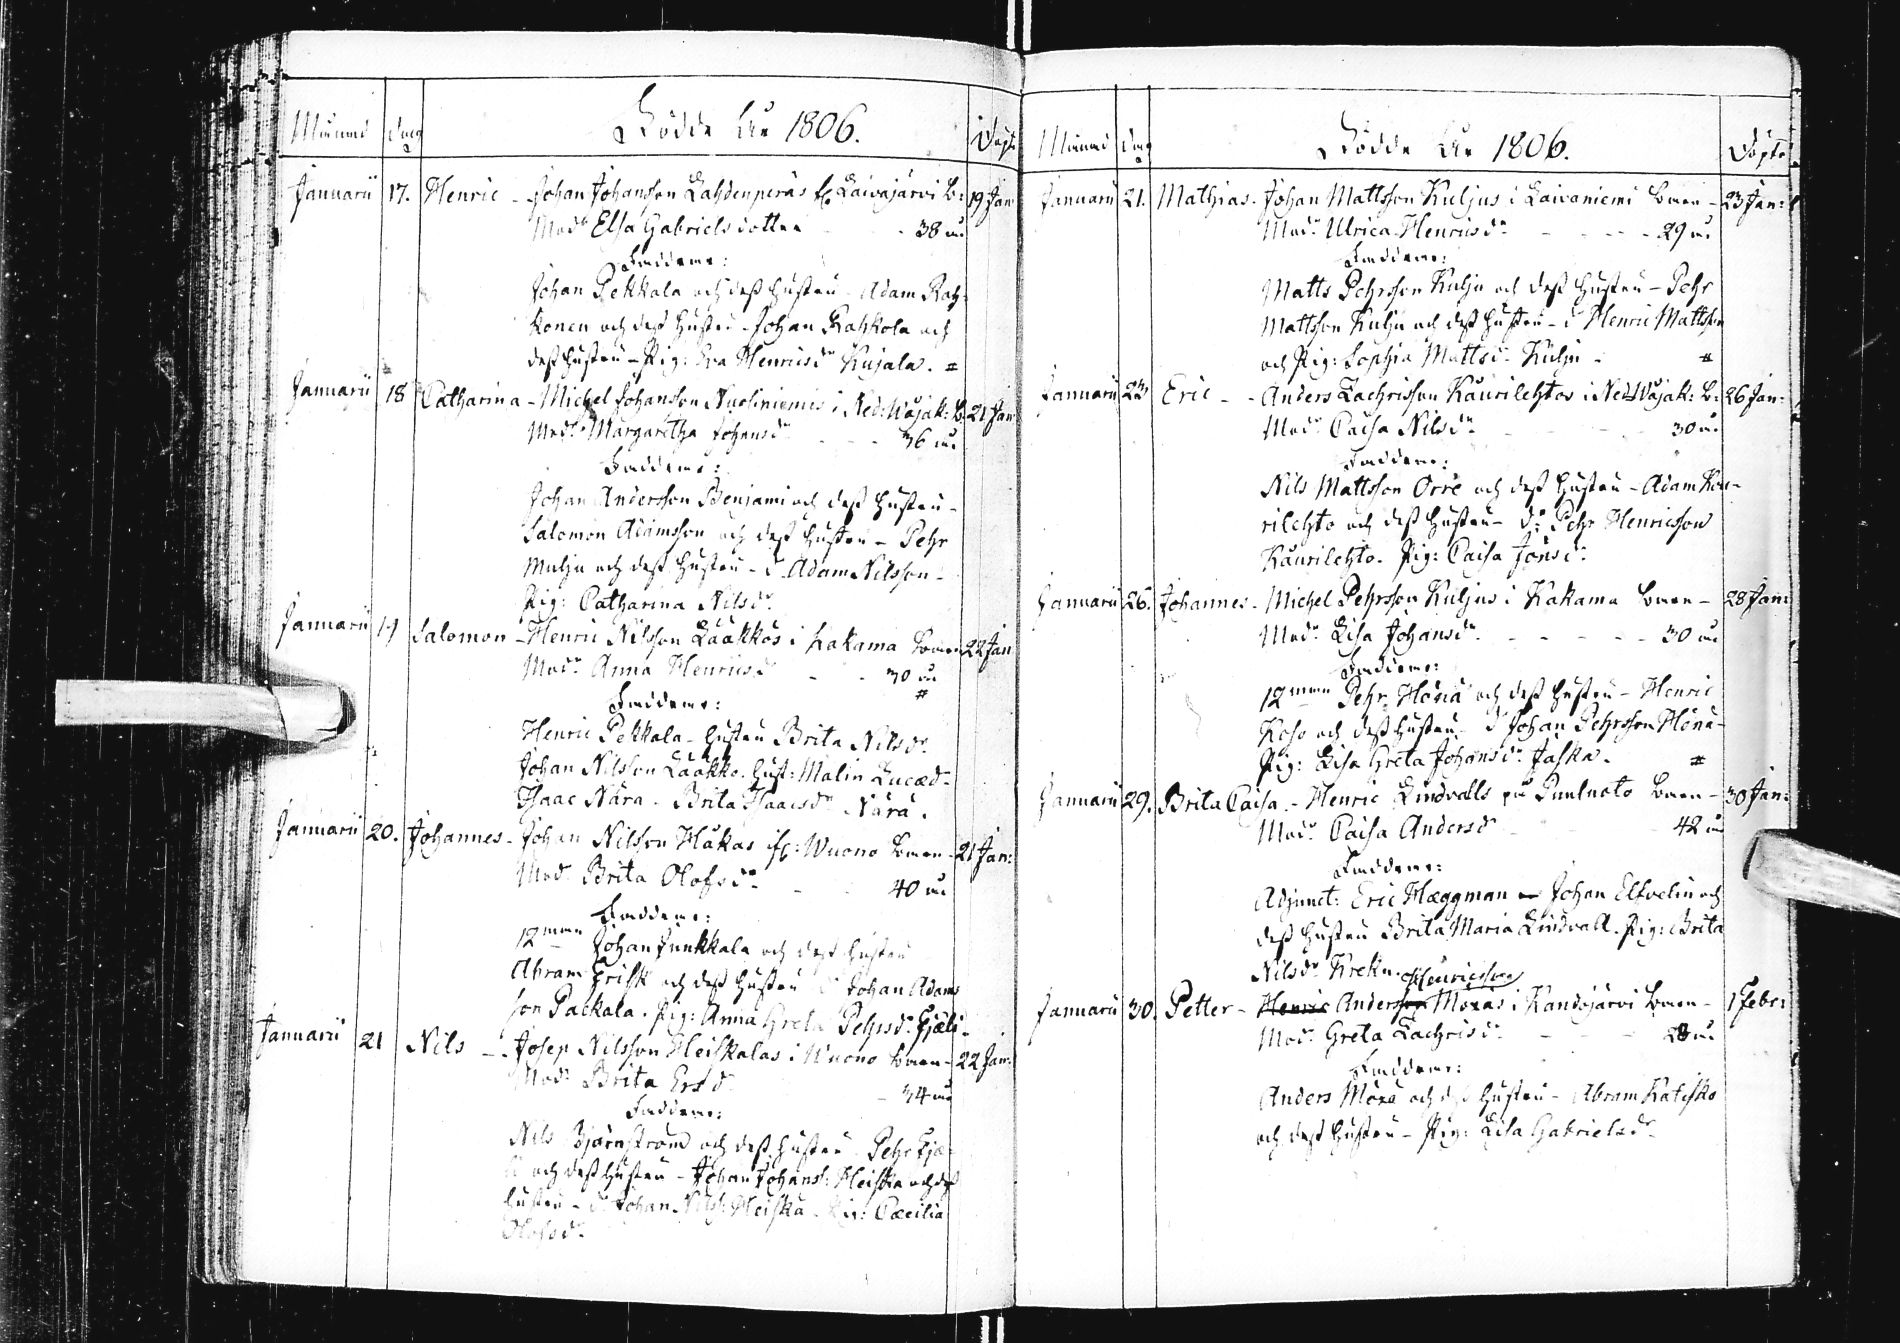 Månad dag Födde År 1806. Döpt
Januarii 17. Henric - Johan Johansson Lahdenperäs fr. Laivajärvi b: 19 Jan
Modr Elsa Gabrielsdotter - - 38 år
Faddrar:
Johan Pekkala och dess hustru - Adam Rah-
konen och dess hustru - Johan Rahkola och
dess hustru - Pig: Eva Henricsdr Kujala. #
Januarii 18 Catharina - Michel Johansson Nuosiniemis i Ned: Wojak: b. 21 Jan
Modr Margaretha Johansdr - - - 36 år
Faddrar:
Johan Andersson Benjami och dess hustru -
Salomon Adamsson och dess hustru - Pehr
Mulju och dess hustru - d. Adam Nilsson -
Pig: Catharina Nilsdr
Januarii 19 Salomon - Henric Nilsson Lääkkös i Kakama boren 22 Jan
Modr Anna Henricsdr - - 30 år
#
Faddrar:
Henric Pekkala - hustru Brita Nilsdr
Johan Nilsson Lääkkö. hust: Malin Lucæd-
Isaac Nära - Brita Isaacsdr Nära.
Januarii 20. Johannes - Johan Nilsson Hakas fr: Wuono boren - 21 Jan:
Modr Brita Olofsdr - 40 år
Faddrar:
12man Johan Junkkala och dess hustru
Abram Erisk och dess hustru d Johan Adams
son Packala. Pig: Anna Greta Pehrsdr Fjæli-
Januarii 21 Nils - Josep Nilsson Heiskalas i Wuono boren - 22 Jan:
Modr Brita Ersdr - 34 år
Faddrar:
Nils Björnström och dess hustru Pehr Fjæ-
li och dess hustru - Johan Johans: Heiska och dess
hustru - d. Johan Nils: Heiska. Pig: Cæcilia
Olofsdr
Månad dag Födde År 1806. Döpte
Januarii 21. Mathias. Johan Mattsson Kuljus i Laivaniemi boren - 23 Jan:
Modr Ulrica Henricsdr - - - - 29 år
Faddrar:
Matts Pehrsson Kulju och dess hustru - Pehr
Mattsson Kulju och dess hustru - d Henric Mattsson
och Pig: Sophia Mattsdr Kulju - #
Januarii 23 Eric - - Anders Zachrisson Kaurilehtos i Ned Wojak: b: 26 Jan:
Modr Caisa Nilsdr - - - 30 år
Faddrar:
Nils Mattsson Orre och dess hustru - Adam Kau-
rilehto och dess hustru - d: Pehr Henricsson
Kaurilehto. Pig: Caisa Jönsdr
Januarii 26. Johannes - Michel Pehrsson Kuljus i Kakama boren - 28 Jan:
Modr Lisa Johansdr - - - - 30 år
Faddrar:
12man Pehr Hosia och dess hustru - Henric
Koso och dess hustru d Johan Pehrsson
Pig: Lisa Greta Johansdr Jaska. #
Januarii 29. Brita Caisa. - Henric Lindvalls på boren - 30 Jan:
Modr Caisa Andersdr - 42 år
Faddrar:
Adjunct: Eric Hæggman - Johan Elfvelin och
dess hustru Brita Maria Lindvall. Pig: Brita
Nilsdr Kreku.
Henricsson
Januarii 30. Petter - Henric Andersson Moxas i Kandojärvi boren - 1 Febr:
Modr Greta Zachrisdr - - - år
Faddrar:
Anders Moxa och dess hustru - Abram Katisko
och dess hustru - Pig: Lisa Gabrielsdr